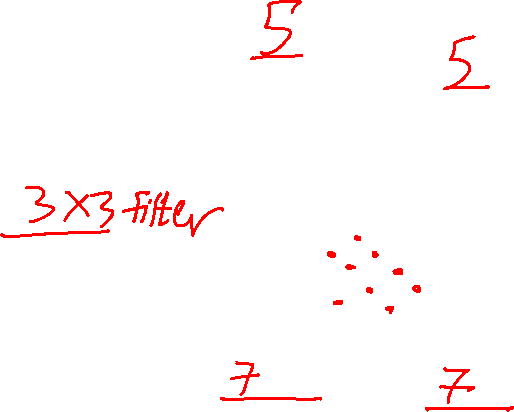 5
5
3×3 filter
7
7